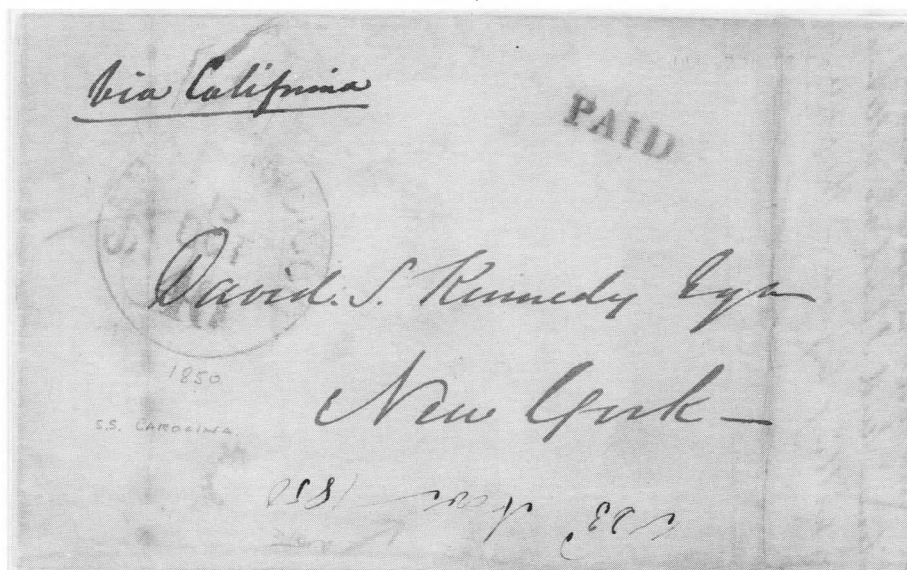 via California
PAID
OCT
David. S. Kennedy Esqr
New York
1850
S.S. CAROLINA
1850